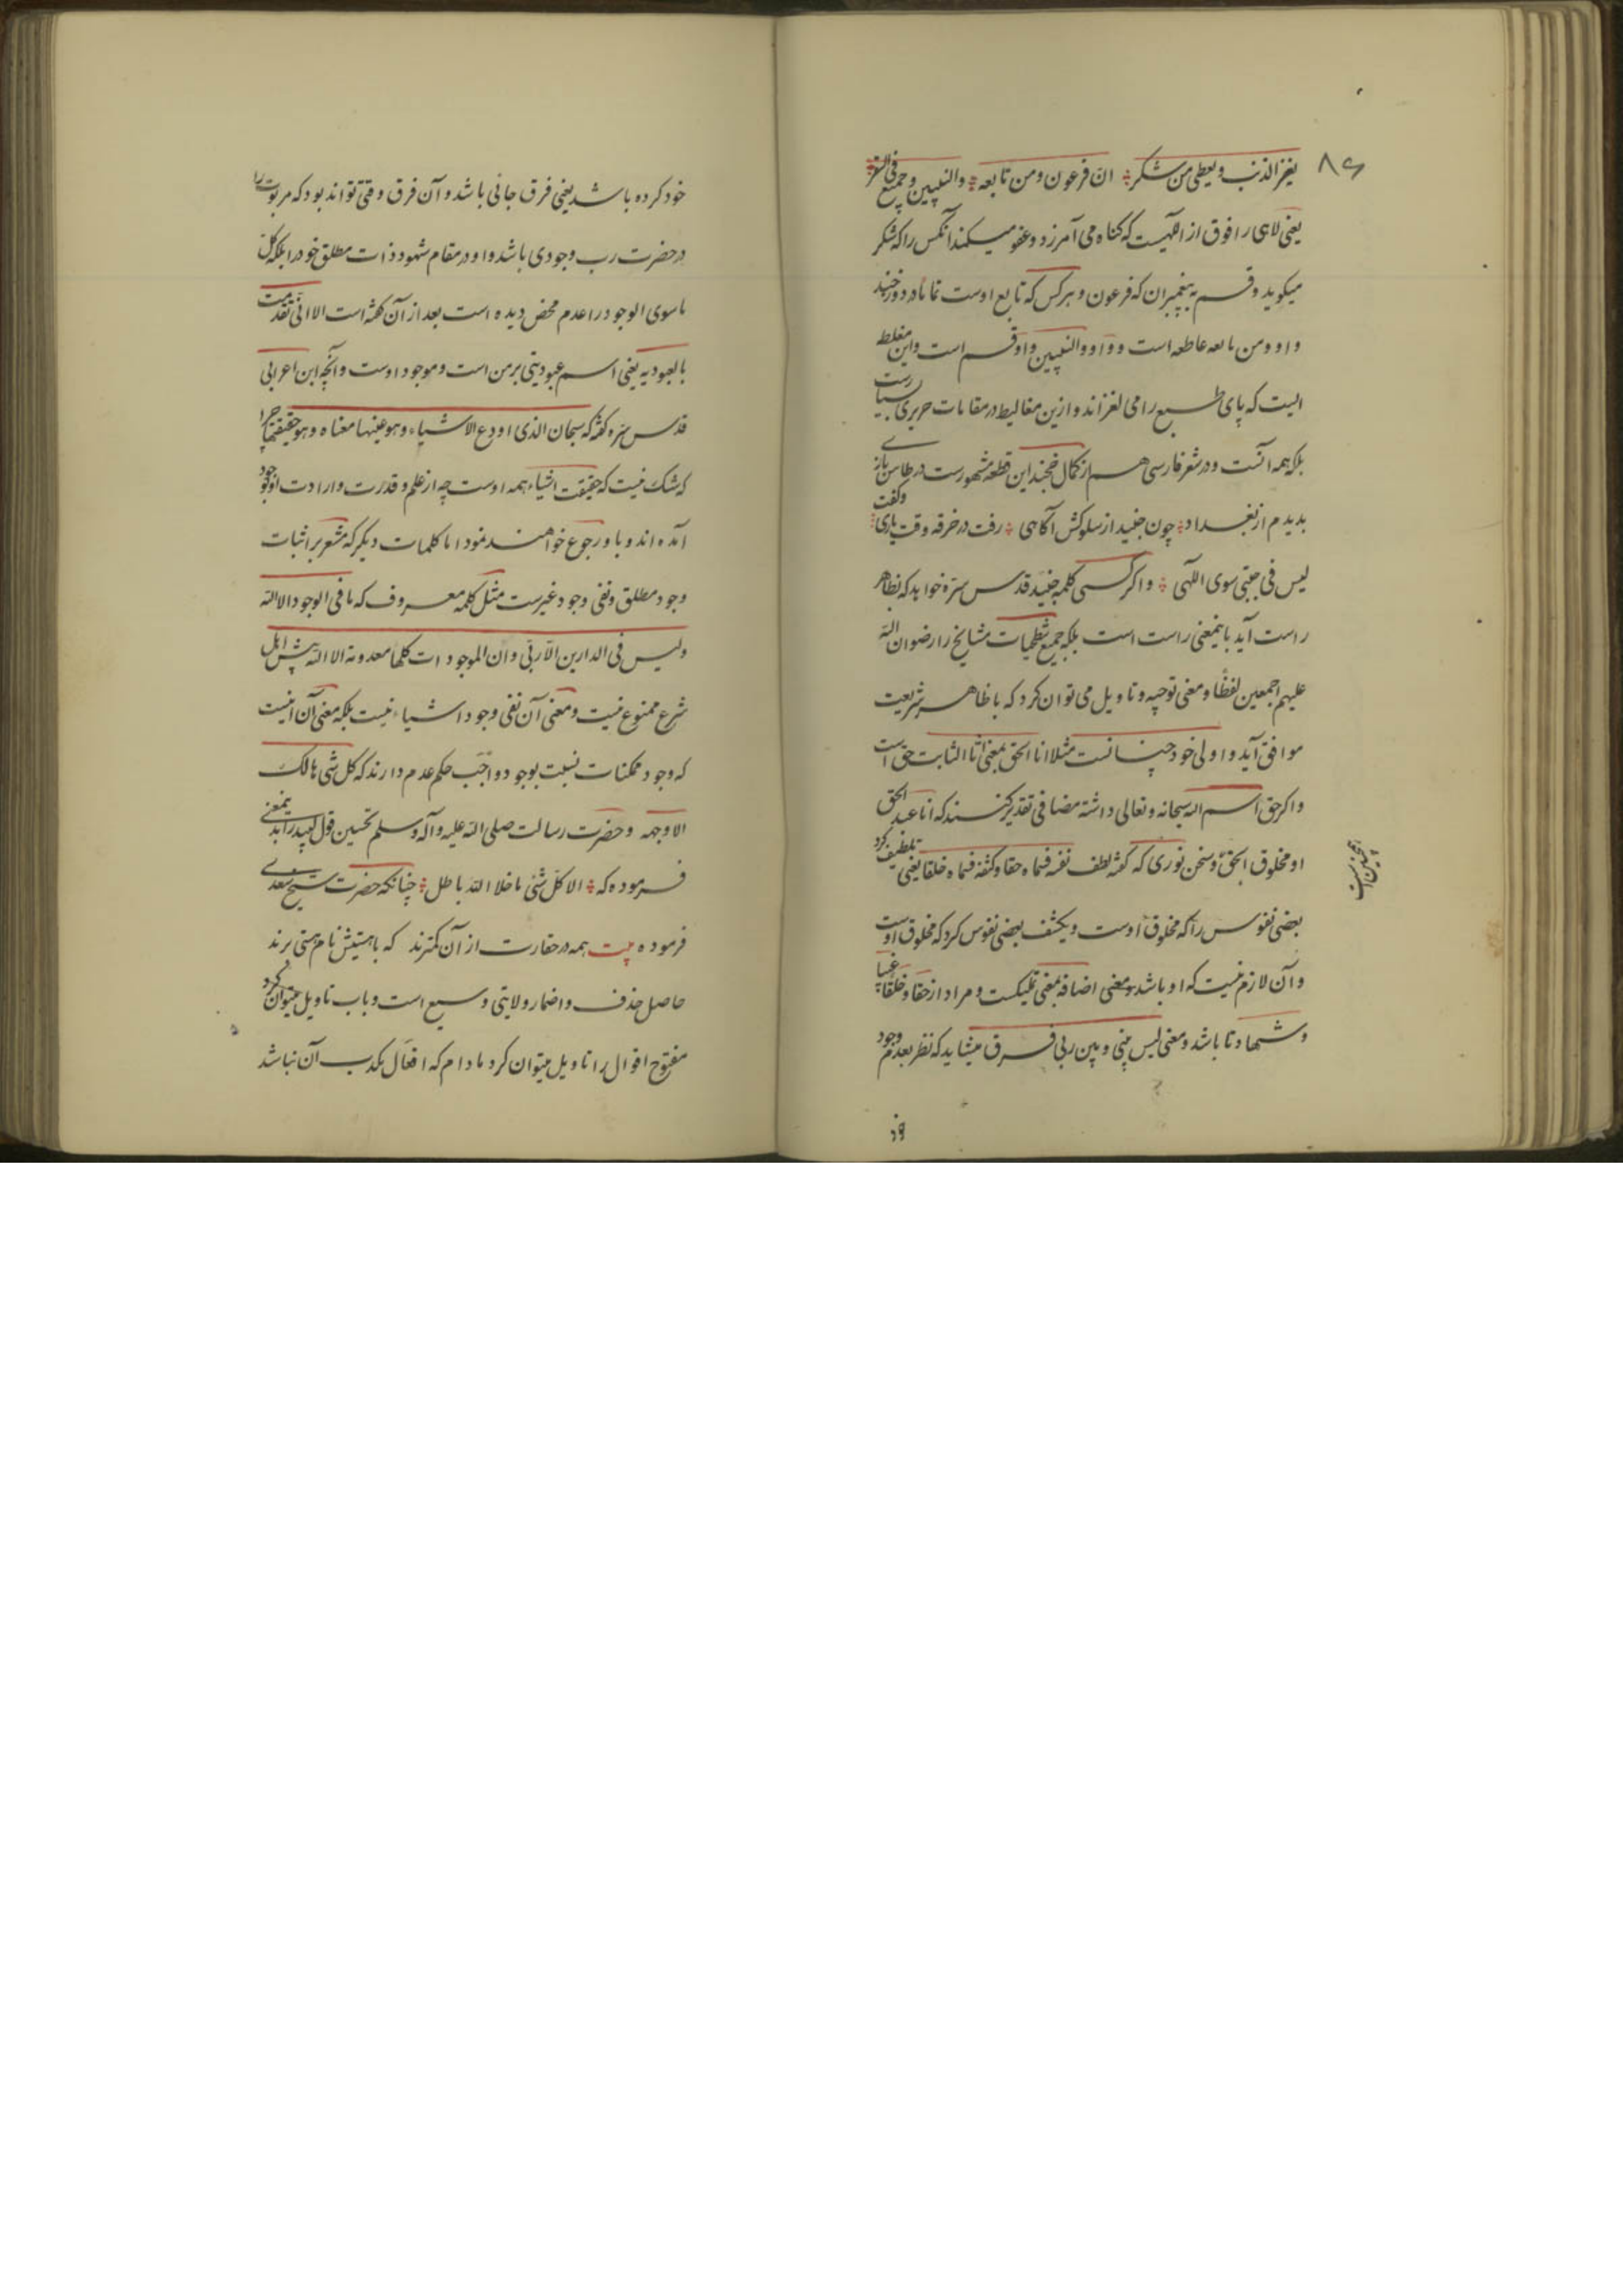 ۸۶
یغفر الذنب و یعطی من شکر ان فرعون و من تابعه والنبیین و جمیع فی السقر
یعنی لاهی را فوق از الهیست که گناه می آمرزد و عفو میکند آنکس را که شکر
میکوید و قسم به پیغمبران که فرعون و هر کس که تابع اوست تماماً در دوزخند
و او و من تابعه عاطفه است و واو والنبیین واو قسم است و این مغلطه
الیست که پای طبع را می لغزاند و ازین مغالیط در مقامات حریری بسیارست
بلکه همه آنست و در شعر فارسی هم از کمال خجند این قطعه مشهورست در طاس بازی
بدیدم از بغداد چون جنید از سلوکش آگاهی رفت در خرقه وقت بازی و گفت
لیس فی جبتی سوی اللهی و اگر کسی کلمه جنید قدس سره خواهد که بظاهر
راست آید باینمعنی راست است بلکه جمیع شطحیات مشایخ را رضوان الله
علیهم اجمعین لفظاً و معنی توجیه و تاویل می توان کرد که با ظاهر شریعت
موافق آید و اولی خود چنانست مثلا انا الحق بمعنی انا الثابت حق است
و اگر حق اسم الله سبحانه و تعالی داشته مضافی تقدیر کنند که انا عبد الحق
او مخلوق الحق و سخن نوری که گفته لطف نفسه فسماه حقا و کثفه فسماه خلقا یعنی تلطیف کرد
بعضی نفوس را که مخلوق اوست و بکثف بعضی نفوس کرد که مخلوق اوست
و آن لازم نیست که او باشد و معنی اضافه بمعنی تملیکست و مراد از حقا و خلقا غیبا
و شهادتا باشد و معنی لیس بینی و بین ربی فرق میشاید که نظر بعدم وجود
خود کرده باشد یعنی فرق جائی باشد و آن فرق وقتی تواند بود که مربوب را
در حضرت رب وجودی باشد و او در مقام شهود ذات مطلق خود را بلکه کل
ماسوی الوجود را عدم محض دیده است بعد از آن گفته است الا انی تقدمت
بالعبودیه یعنی اسم عبودیتی بر من است و موجود اوست و آنچه ابن اعرابی
قدس سره گفته که سبحان الذی اودع الاشیاء و هو عینها معناه و هو حقیقتها
که شک نیست که حقیقت اشیاء همه اوست چه از علم و قدرت و ارادت او بوجود
آمده اند و باو رجوع خواهند نمود اما کلمات دیگر که مشعر بر اثبات
وجود مطلق و نفی وجود غیرست مثل کلمه معروف که ما فی الوجود الا الله
و لیس فی الدارین الا ربی و ان الموجودات کلها معدومه الا الله پیش اهل
شرع ممنوع نیست و معنی آن نفی وجود اشیاء نیست بلکه معنی آن اینست
که وجود ممکنات نسبت بوجود واجب حکم عدم دارند که کل شی هالک
الا وجهه و حضرت رسالت صلی الله علیه و آله و سلم تحسین قول لبید را بدینمعنی
فرموده که الا کل شئ ما خلا الله باطل چنانکه حضرت شیخ سعدی
فرموده بیت همه در حقارت از آن کمترند که باهستیش نام هستی برند
حاصل حذف و اضمار ولایتی وسیع است و باب تاویل میتوان کرد
مفتوح اقوال را تاویل میتوان کرد مادام که افعال مکذب آن نباشد